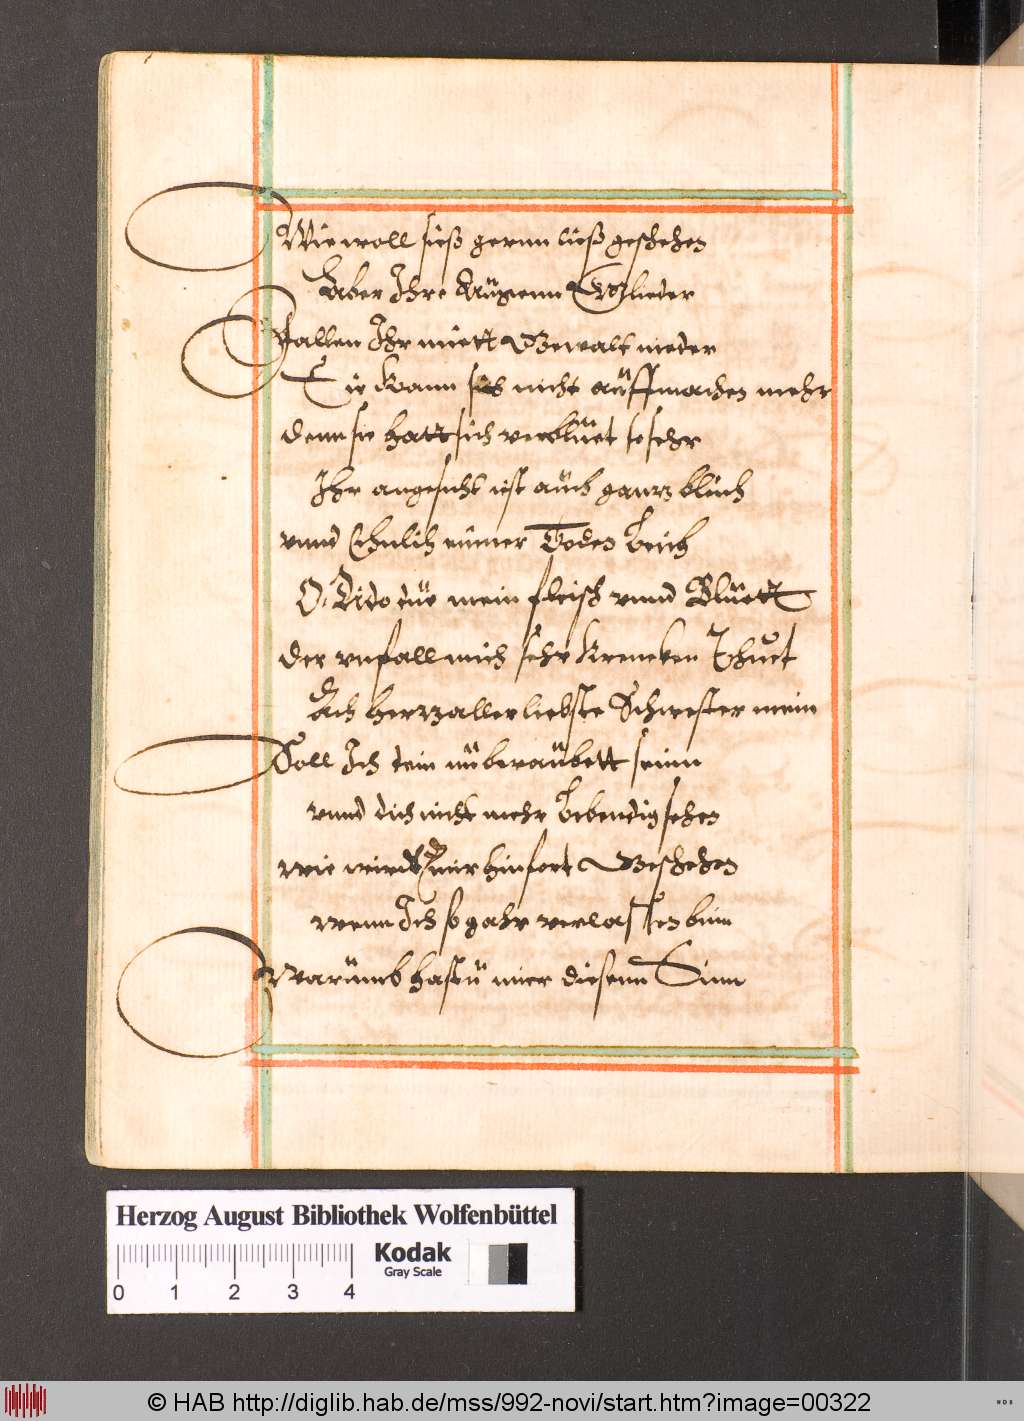 Wiewoll sieß gernn ließ geschehen
Aber Ihre Aügenn Glieder
Fallen Ihr mitt Gewalt nieder
Sie Kann sie nicht aüffmachen mehr
denn sie hatt sich verblüet so sehr
Ihr angesicht ist aüch gantz blich
vnnd Ehnlich einner Todten Leich
O Dido düe mein fleisch vnnd Blüett
der vnfall mich sehr Krencken Thuet
Ach hertzallerliebste Schwester mein
Soll Ich dein nü beraübett seinn
vnnd dich nicht mehr Lebendig sehen
wie wirdt mir hinfort Geschehen
wenn Ich so gahr verlassen binn
Warümb hastü mier diesenn Sinn
Herzog August Bibliothek Wolfenbüttel
Kodak
Gray Scale
0 1 2 3 4
© HAB http://diglib.hab.de/mss/992-novi/start.htm?image=00322